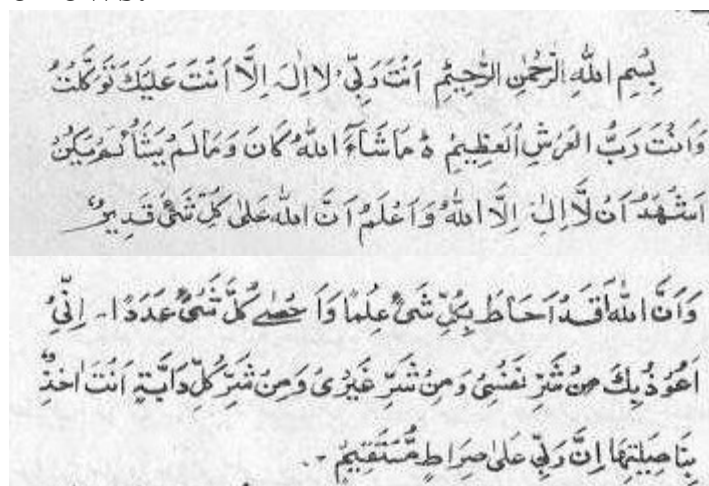 بِسْمِ اللهِ الرَّحْمٰنِ الرَّحِيْمِ اَنْتَ رَبِّىْ لَا اِلٰهَ اِلَّا اَنْتَ عَلَيْكَ تَوَكَّلْتُ
وَاَنْتَ رَبُّ الْعَرْشِ الْعَظِيْمِ ہ مَاشَآءَ اللهُ كَانَ وَمَا لَمْ يَشَأْ لَمْ يَكُنْ
اَشْهَدُ اَنْ لَّا اِلٰهَ اِلَّا اللهُ وَاَعْلَمُ اَنَّ اللهَ عَلٰى كُلِّ شَىْءٍ قَدِيْرٌ
وَاَنَّ اللهَ قَدْ اَحَاطَ بِكُلِّ شَىْءٍ عِلْمًا وَاَحْصٰے كُلَّ شَىْءٍ عَدَدًا۔ اِنِّىْ
اَعُوْذُ بِكَ مِنْ شَرِّ نَفْسِىْ وَمِنْ شَرِّ غَيْرِىْ وَمِنْ شَرِّ كُلِّ دَابَّةٍ اَنْتَ اٰخِذٌ
بِنَاصِيَتِهَا اِنَّ رَبِّىْ عَلٰى صِرَاطٍ مُّسْتَقِيْمٍ ۔